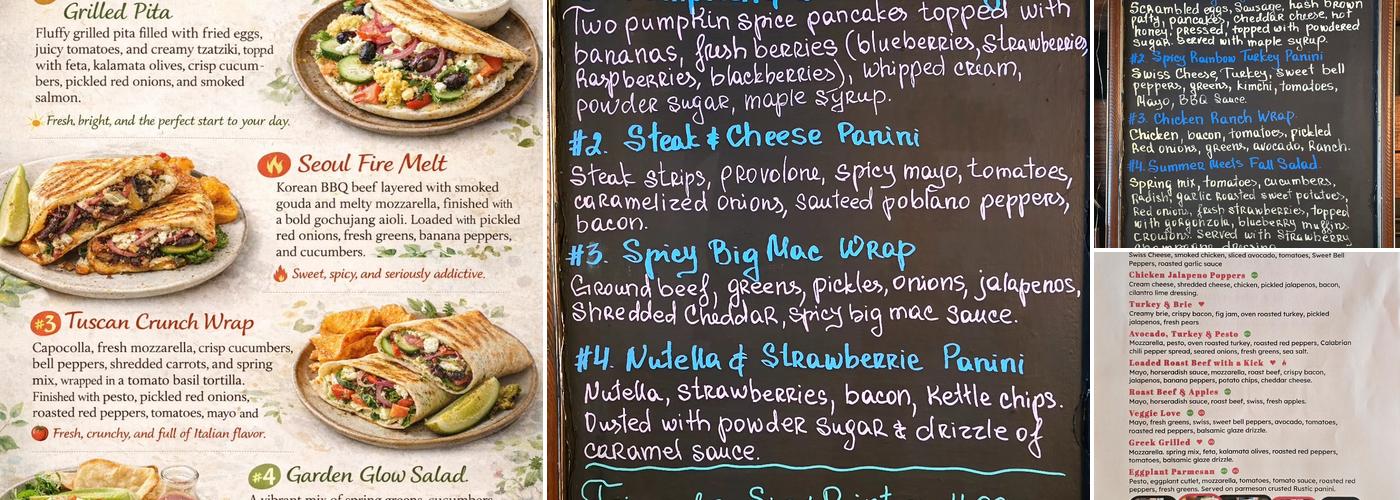 Grilled Pita
Fluffy grilled pita filled with fried eggs,
juicy tomatoes, and creamy tzatziki, toppd
with feta, kalamata olives, crisp cucum-
bers, pickled red onions, and smoked
salmon.
Fresh, bright, and the perfect start to your day.
Seoul Fire Melt
Korean BBQ beef layered with smoked
gouda and melty mozzarella, finished with
a bold gochujang aioli. Loaded with pickled
red onions, fresh greens, banana peppers,
and cucumbers.
Sweet, spicy, and seriously addictive.
#3 Tuscan Crunch Wrap
Capocolla, fresh mozzarella, crisp cucumbers,
bell peppers, shredded carrots, and spring
mix, wrapped in a tomato basil tortilla.
Finished with pesto, pickled red onions,
roasted red peppers, tomatoes, mayo and
Fresh, crunchy, and full of Italian flavor.
#4 Garden Glow Salad.
A vibrant mix of spring greens, cucumbers
Two pumpkin spice pancakes topped with
bananas, fresh berries (blueberries, Strawberries,
Raspberries, blackberries), whipped cream,
powder sugar, maple syrup.
#2. Steak & Cheese Panini
Steak strips, provolone, spicy mayo, tomatoes,
caramelized onions, sauteed poblano peppers,
bacon.
#3. Spicy Big Mac Wrap
Ground beef, greens, pickles, onions, jalapenos,
Shredded Cheddar, spicy big mac sauce.
#4. Nutella & Strawberrie Panini
Nutella, strawberries, bacon, Kettle chips.
Dusted with powder sugar & drizzle of
caramel sauce.
Scrambled eggs, Sausage, hash brown
patty, pancakes, cheddar cheese, hot
honey. pressed, topped with powdered
sugar. Served with maple syrup.
#2. Spicy Rainbow Turkey Panini
Swiss Cheese, Turkey, Sweet bell
peppers, greens, kimchi, tomatoes,
Mayo, BBQ Sauce.
#3. Chicken Ranch Wrap.
Chicken, bacon, tomatoes, pickled
Red onions, greens, avocado, Ranch.
#4. Summer Meets Fall Salad.
Spring mix, tomatoes, cucumbers,
Radish, garlic Roasted sweet potatoes,
Red onions, fresh strawberries, topped
with gorgonzola, blueberry muffins
croutons. Served with Strawberry
champagne dressing.
Swiss Cheese, smoked chicken, sliced avocado, tomatoes, Sweet Bell
Peppers, roasted garlic sauce
Chicken Jalapeno Poppers
Cream cheese, shredded cheese, chicken, pickled jalapenos, bacon,
cilantro lime dressing.
Turkey & Brie
Creamy brie, crispy bacon, fig jam, oven roasted turkey, pickled
jalapenos, fresh pears
Avocado, Turkey & Pesto
Mozzarella, pesto, oven roasted turkey, roasted red peppers, Calabrian
chili pepper spread, seared onions, fresh greens, sea salt.
Loaded Roast Beef with a Kick
Mayo, horseradish sauce, mozzarella, roast beef, crispy bacon,
jalapenos, banana peppers, potato chips, cheddar cheese.
Roast Beef & Apples
Mayo, horseradish sauce, roast beef, swiss, fresh apples.
Veggie Love
Mayo, fresh greens, swiss, sweet bell peppers, avocado, tomatoes,
roasted red peppers, balsamic glaze drizzle.
Greek Grilled
Mozzarella, spring mix, feta, kalamata olives, roasted red peppers,
tomatoes, balsamic glaze drizzle.
Eggplant Parmesan
Pesto, eggplant cutlet, mozzarella, tomatoes, tomato sauce, roasted red
peppers, fresh greens. Served on parmesan crusted Rustic panini.